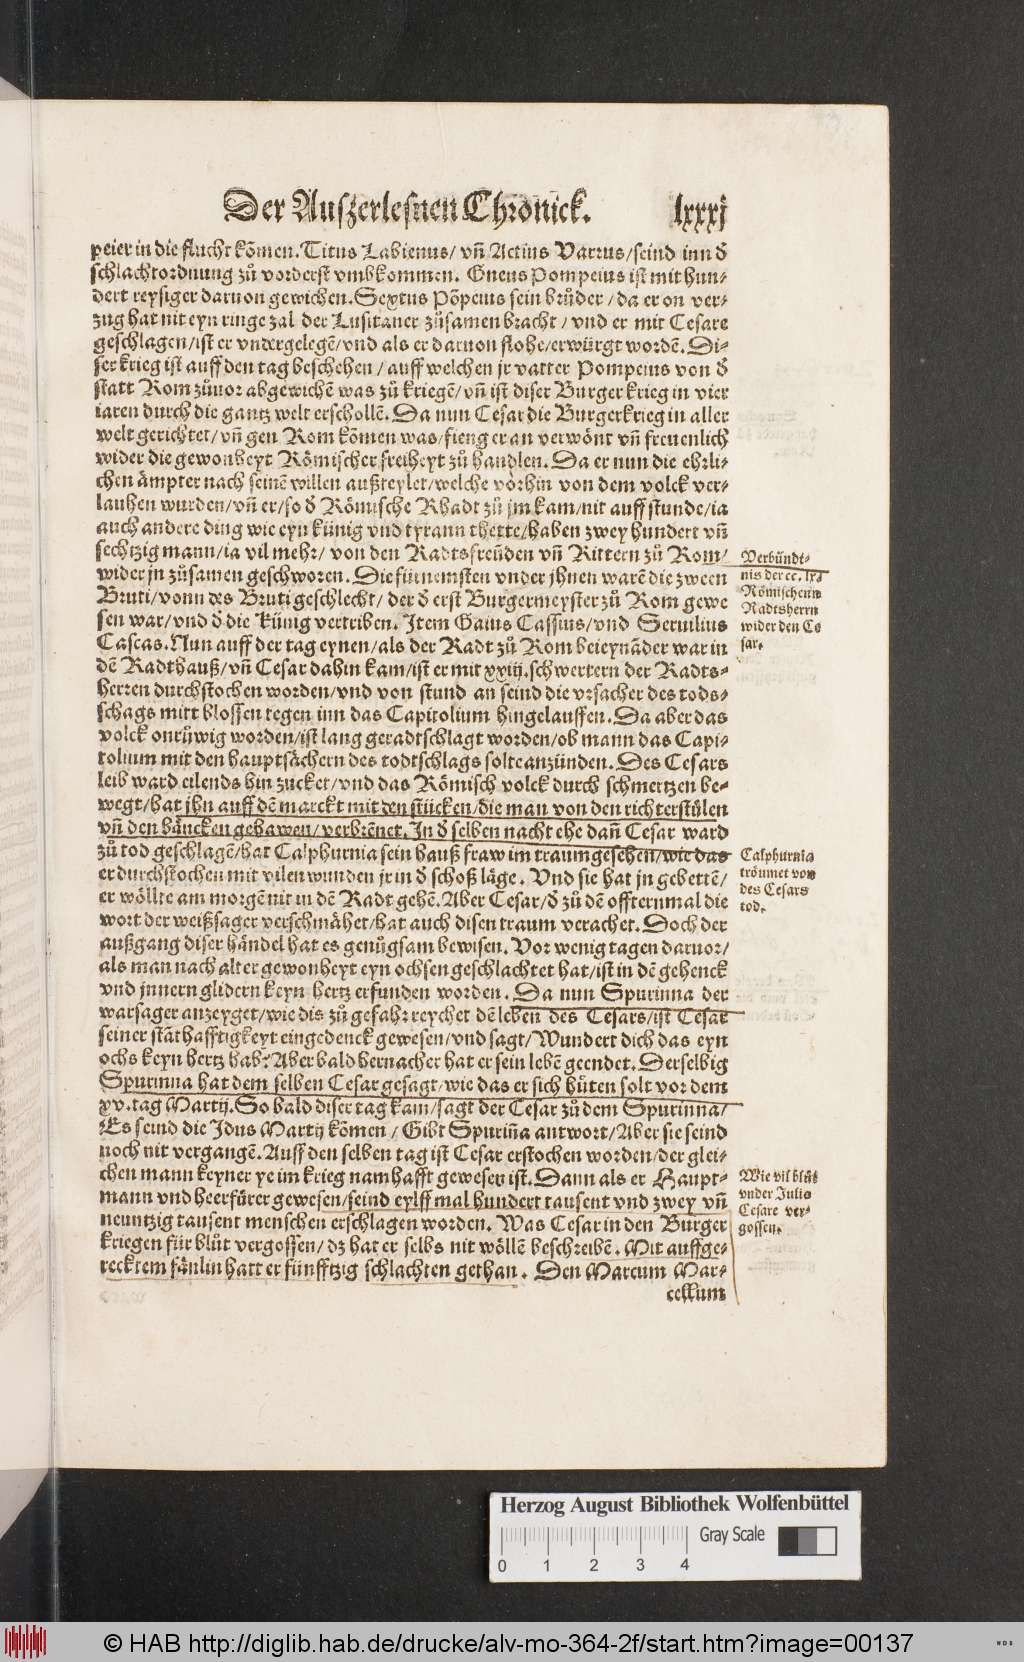 Der Auszerlesnen Chronick. lxxxj
peier in die flucht kõmen. Titus Labienus/ vñ Actius Varrus/ seind inn d̕
schlachtordnung zů vorderst vmbkommen. Gneus Pompeius ist mit hun-
dert reysiger daruon gewichen. Sextus Põpeius sein brůder / da er on ver-
zug hat nit eyn ringe zal der Lusitaner zůsamen bracht / vnd er mit Cesare
geschlagen/ ist er vndergelegẽ/ vnd als er daruon flohe/ erwürgt wordẽ. Di-
ser krieg ist auff den tag beschehen / auff welchen jr vatter Pompeius von d̕
statt Rom zůuor abgewichẽ was zů kriegẽ/ vñ ist diser Burgerkrieg in vier
iaren durch die gantz welt erschollẽ. Da nun Cesar die Burgerkrieg in aller
welt gerichtet/ vñ gen Rom kõmen was/ fieng er an verwönt vñ freuenlich
wider die gewonheyt Römischer freiheyt zů handlen. Da er nun die ehrli-
chen ämpter nach seinẽ willen außteylet/ welche vorhin von dem volck ver-
lauhen wurden/ vñ er/ so d̕ Römische Rhadt zů jm kam/ nit auff stunde/ ia
auch andere ding wie eyn künig vnd tyrann thette/ haben zwey hundert vñ
sechtzig mann/ ia vil mehr/ von den Radtsfreünden vñ Rittern zů Rom/
wider jn zůsamen geschworen. Die fürnemsten vnder jhnen warẽ die zween
Bruti/ vonn des Bruti geschlecht/ der d̕ erst Burgermeyster zů Rom gewe
sen war/ vnd d̕ die Künig vertriben. Item Gaius Cassius/ vnd Seruilius
Cascas. Nun auff der tag eynen/ als der Radt zů Rom beieynãder war in
dẽ Radthauß/ vñ Cesar dahin kam/ ist er mit xxiij. schwertern der Radts-
herren durchstochen worden/ vnd von stund an seind die vrsacher des tods-
schags mitt blossen tegen inn das Capitolium hingelauffen. Da aber das
volck onrüwig worden/ ist lang geradtschlagt worden/ ob mann das Capi-
tolium mit den hauptsächern des todtschlags solte anzünden. Des Cesars
leib ward eilends hin zucket/ vnd das Römisch volck durch schmertzen be-
wegt/ hat jhn auff dẽ marckt mit den stücken/ die man von den richterstůlen
vñ den bäncken gehawen/ verbrẽnet. In d̕ selben nacht ehe dañ Cesar ward
zů tod geschlagẽ/ hat Calphurnia sein hauß fraw im traum gesehen/ wie das
er durchstochen mit vilen wunden jr in d̕ schoß läge. Vnd sie hat jn gebettẽ/
er wöllte am morgẽ nit in dẽ Radt gehẽ. Aber Cesar/ d̕ zů dẽ offternmal die
wort der weißsager verschmähet/ hat auch disen traum verachet. Doch der
außgang diser händel hat es genůgsam bewisen. Vor wenig tagen daruor/
als man nach alter gewonheyt eyn ochsen geschlachtet hat/ ist in dẽ gehenck
vnd jnnern glidern keyn hertz erfunden worden. Da nun Spurinna der
warsager anzeyget/ wie dis zů gefahr reychet dẽ leben des Cesars/ ist Cesar
seiner stãthafftigkeyt eingedenck gewesen/ vnd sagt/ Wundert dich das eyn
ochs keyn hertz hab? Aber bald hernacher hat er sein lebẽ geendet. Derselbig
Spurinna hat dem selben Cesar gesagt/ wie das er sich hůten solt vor dem
xv. tag Martij. So bald diser tag kam/ sagt der Cesar zů dem Spurinna/
Es seind die Idus Martij kõmen / Gibt Spuriña antwort/ Aber sie seind
noch nit vergangẽ. Auff den selben tag ist Cesar erstochen worden/ der glei-
chen mann keyner ye im krieg namhafft gewesen ist. Dann als er Haupt-
mann vnd heerfürer gewesen/ seind eylff mal hundert tausent vnd zwey vñ
neuntzig tausent menschen erschlagen worden. Was Cesar in den Burger
kriegen für blůt vergossen/ dz hat er selbs nit wöllẽ beschreibẽ. Mit auffge-
recktem fänlin hatt er fünfftzig schlachten gethan. Den Marcum Mar-
cellum
Verbündt-
nis der cc. lx.
Römischenn
Radtsherrn
wider den Ce
sar.
Calphurnia
tröumet von
des Cesars
tod.
Wie vil blůt
vnder Julio
Cesare ver-
gossen.
Herzog August Bibliothek Wolfenbüttel
Gray Scale
0 1 2 3 4
© HAB http://diglib.hab.de/drucke/alv-mo-364-2f/start.htm?image=00137